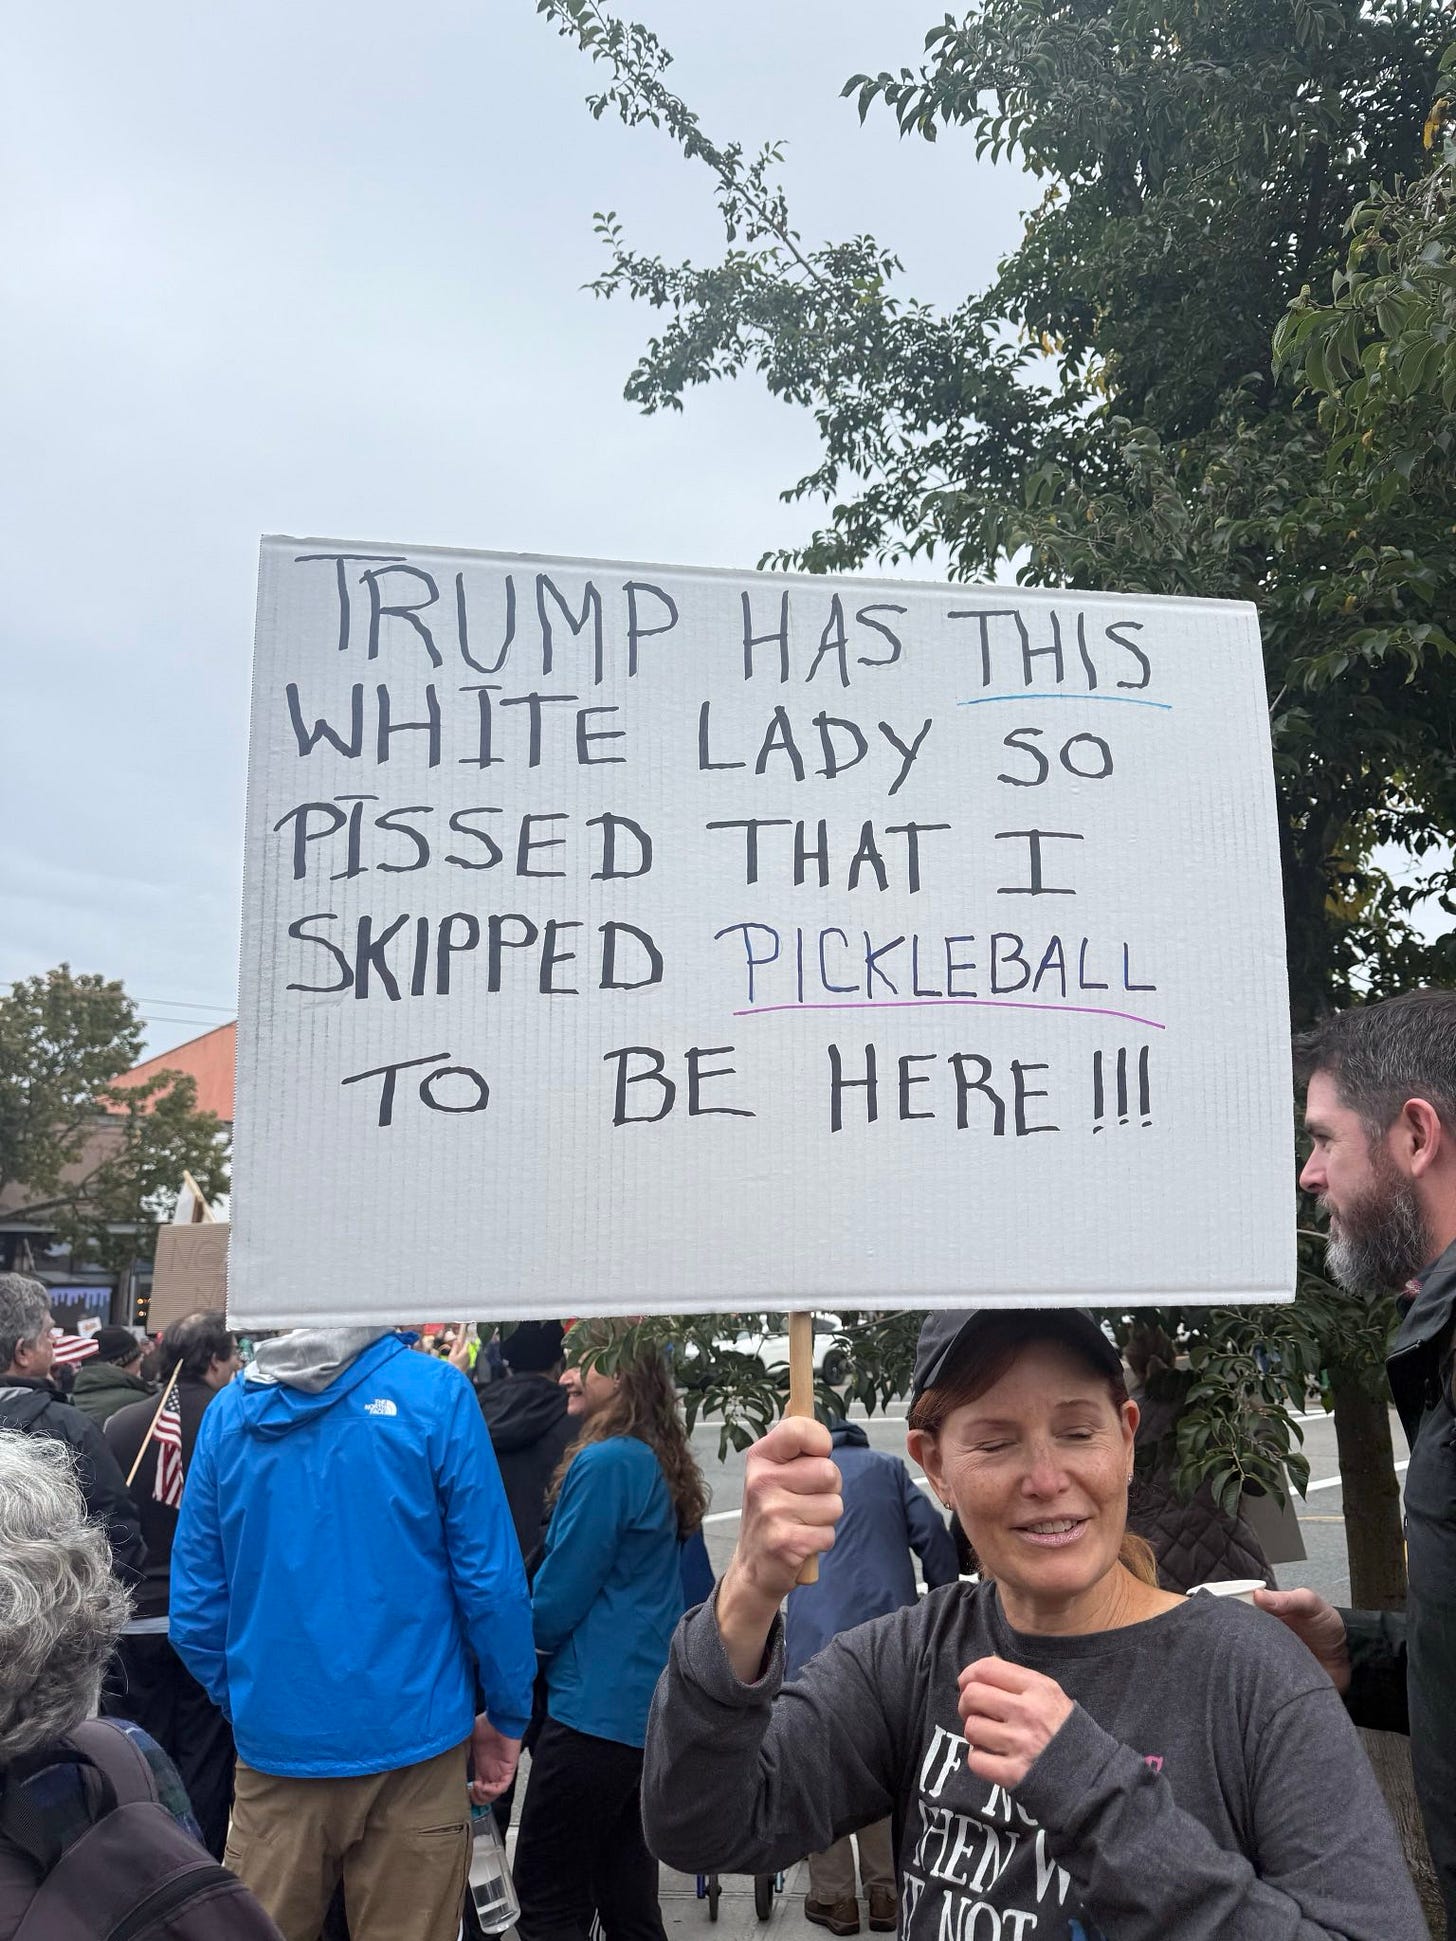 TRUMP HAS THIS
WHITE LADY SO
PISSED THAT I
SKIPPED PICKLEBALL
TO BE HERE!!!
NO
THE
NORTH
FACE
IF NO
THEN W
IF NOT